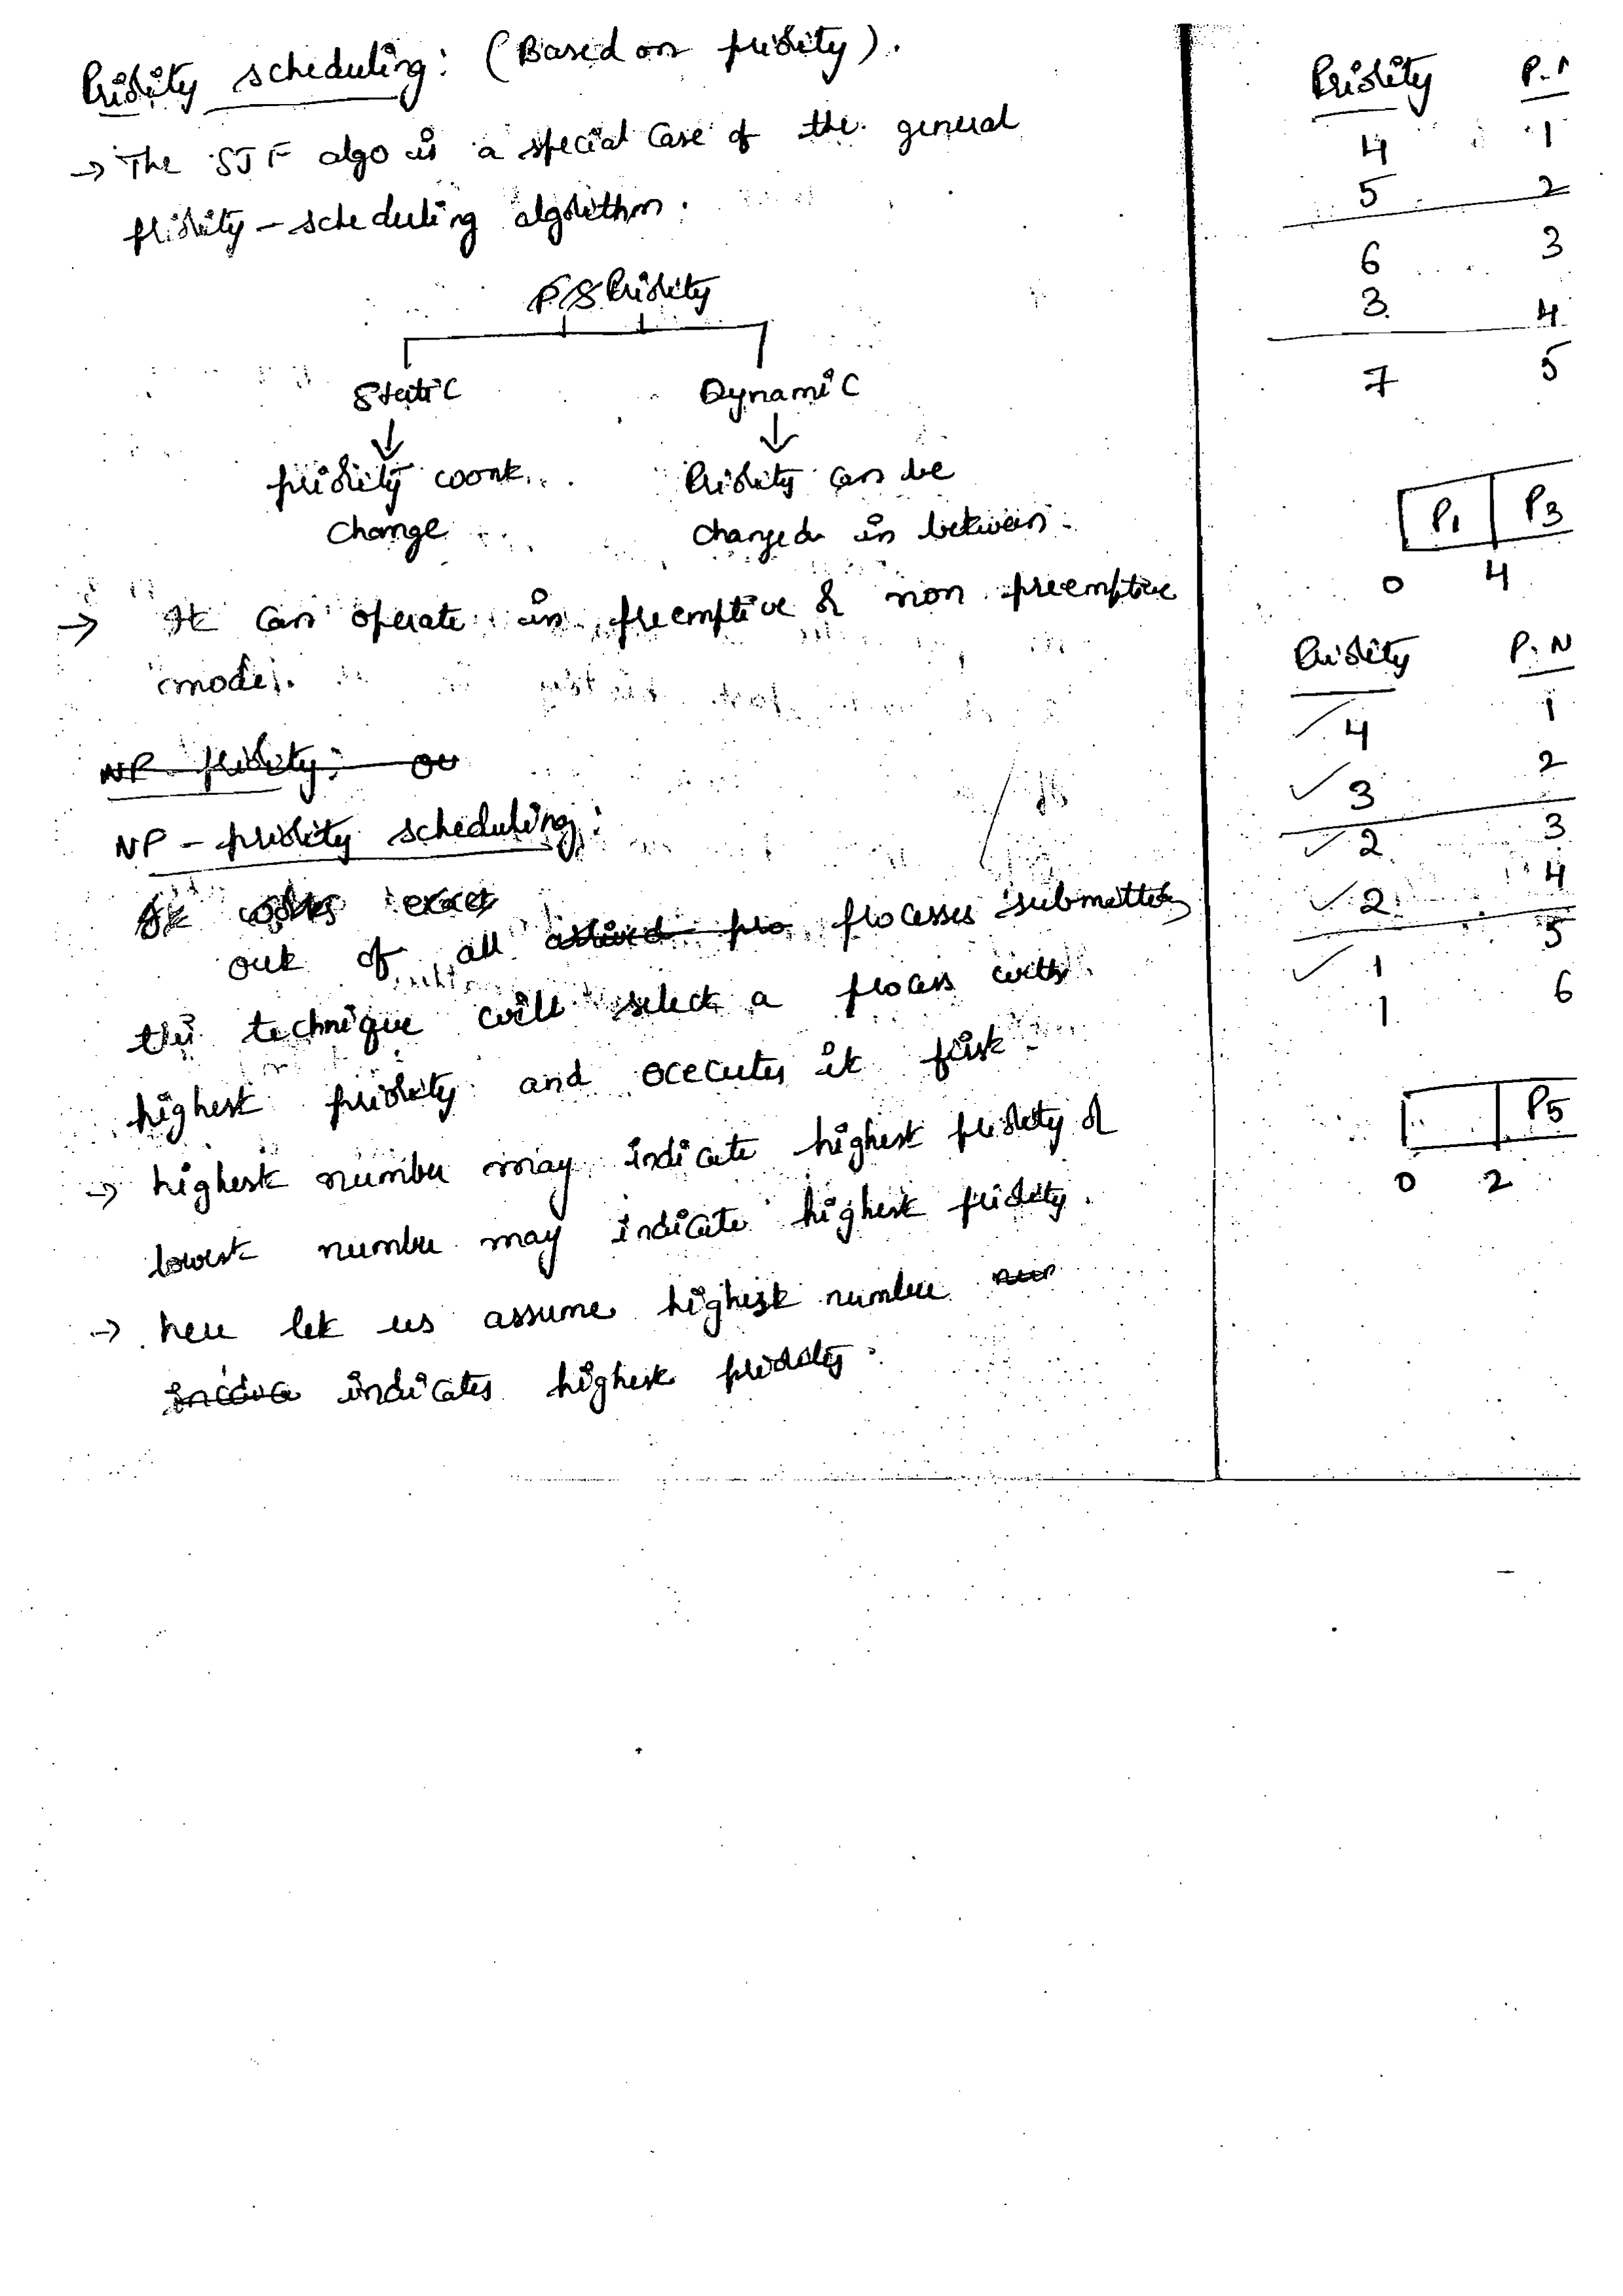 Priority scheduling: (Based on priority).
→ The SJF algo is a special case of the general
priority - scheduling algorithm.
Priority
Static Dynamic
priority wont Priority can be
change changed in between.
→ It can operate in preemptive & non preemptive
mode.
NP - priority: or
NP - priority scheduling:
out of all arrived pro processes submitted
this technique will select a process with
highest priority and executes it first.
→ highest number may indicate highest priority or
lowest number may indicate highest priority.
→ here let us assume highest number
indicates highest priority.
Priority P.N
4 1
5 2
6 3
3 4
7 5
P1 P3
0 4
Priority P.N
4 1
3 2
2 3
2 4
1 5
1 6
P5
0 2